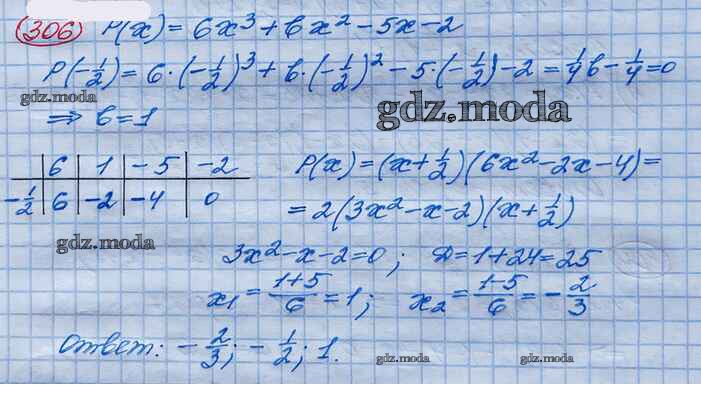 (306) P(x) = 6x³ + bx² - 5x - 2
P(-1/2) = 6·(-1/2)³ + b·(-1/2)² - 5·(-1/2) - 2 = 1/4b - 1/4 = 0
gdz.moda
gdz.moda
⇒ b = 1
6 | 1 | -5 | -2
-1/2 | 6 | -2 | -4 | 0
P(x) = (x + 1/2)(6x² - 2x - 4) =
= 2(3x² - x - 2)(x + 1/2)
gdz.moda
3x² - x - 2 = 0; D = 1 + 24 = 25
x₁ = (1+5)/6 = 1; x₂ = (1-5)/6 = -2/3
Ответ: -2/3; -1/2; 1.
gdz.moda
gdz.moda